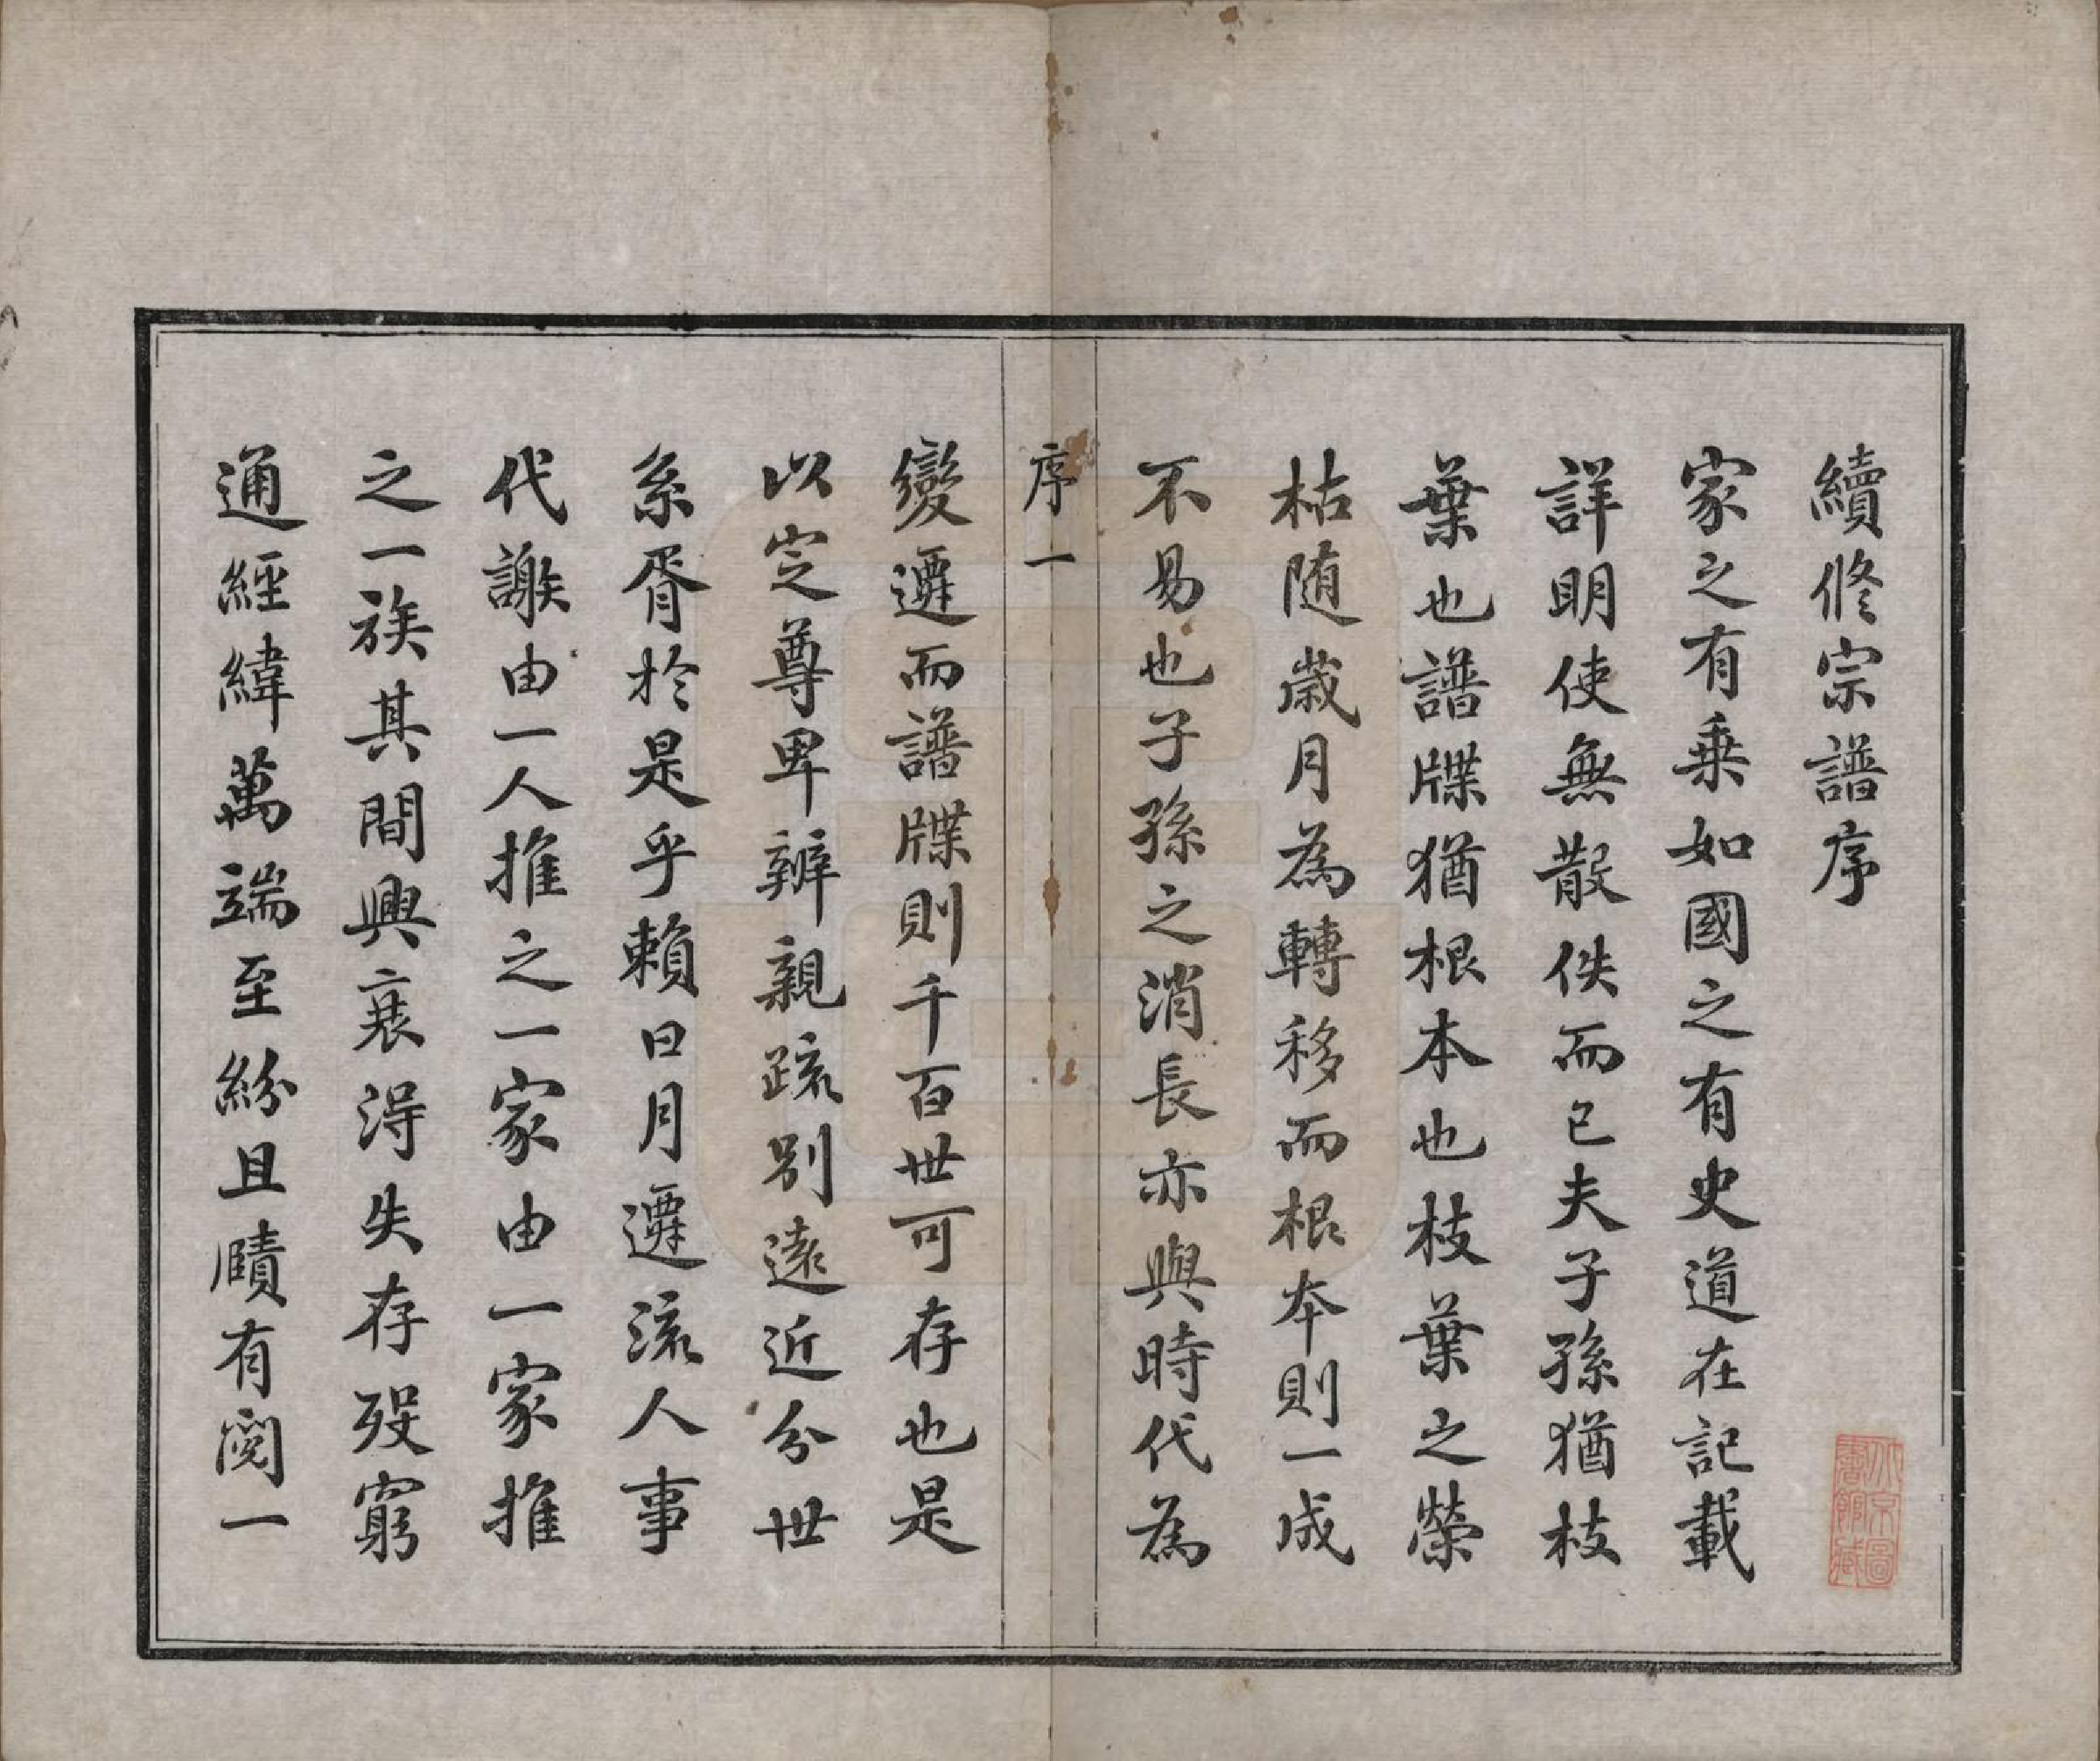 續修宗譜序
家之有乗如國之有史道在記載
詳明使無散佚而已夫子孫猶枝
葉也譜牒猶根本也枝葉之榮
枯随歲月為轉移而根本則一成
不易也子孫之消長亦與時代為
序一
變遷而譜牒則千百世可存也是
以定尊卑辨親疏别遠近分世
系胥於是乎賴日月遷流人事
代謝由一人推之一家由一家推
之一族其間興衰得失存歿窮
通經緯萬端至紛且賾有閱一
北京圖
書館藏